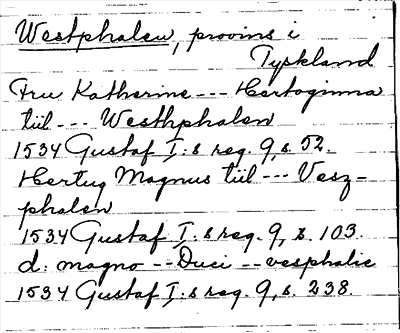 Westphalen, provins i
Tyskland
Fru Katherine --- Hertoginna
tiil --- Westhphalen
1534 Gustaf I:s reg. 9, s. 52.
Hertug Magnus tiil --- Vesz-
phalen
1534 Gustaf I:s reg. 9, s. 103.
d: magno -- Duci -- vesphalie
1534 Gustaf I:s reg. 9, s. 238.